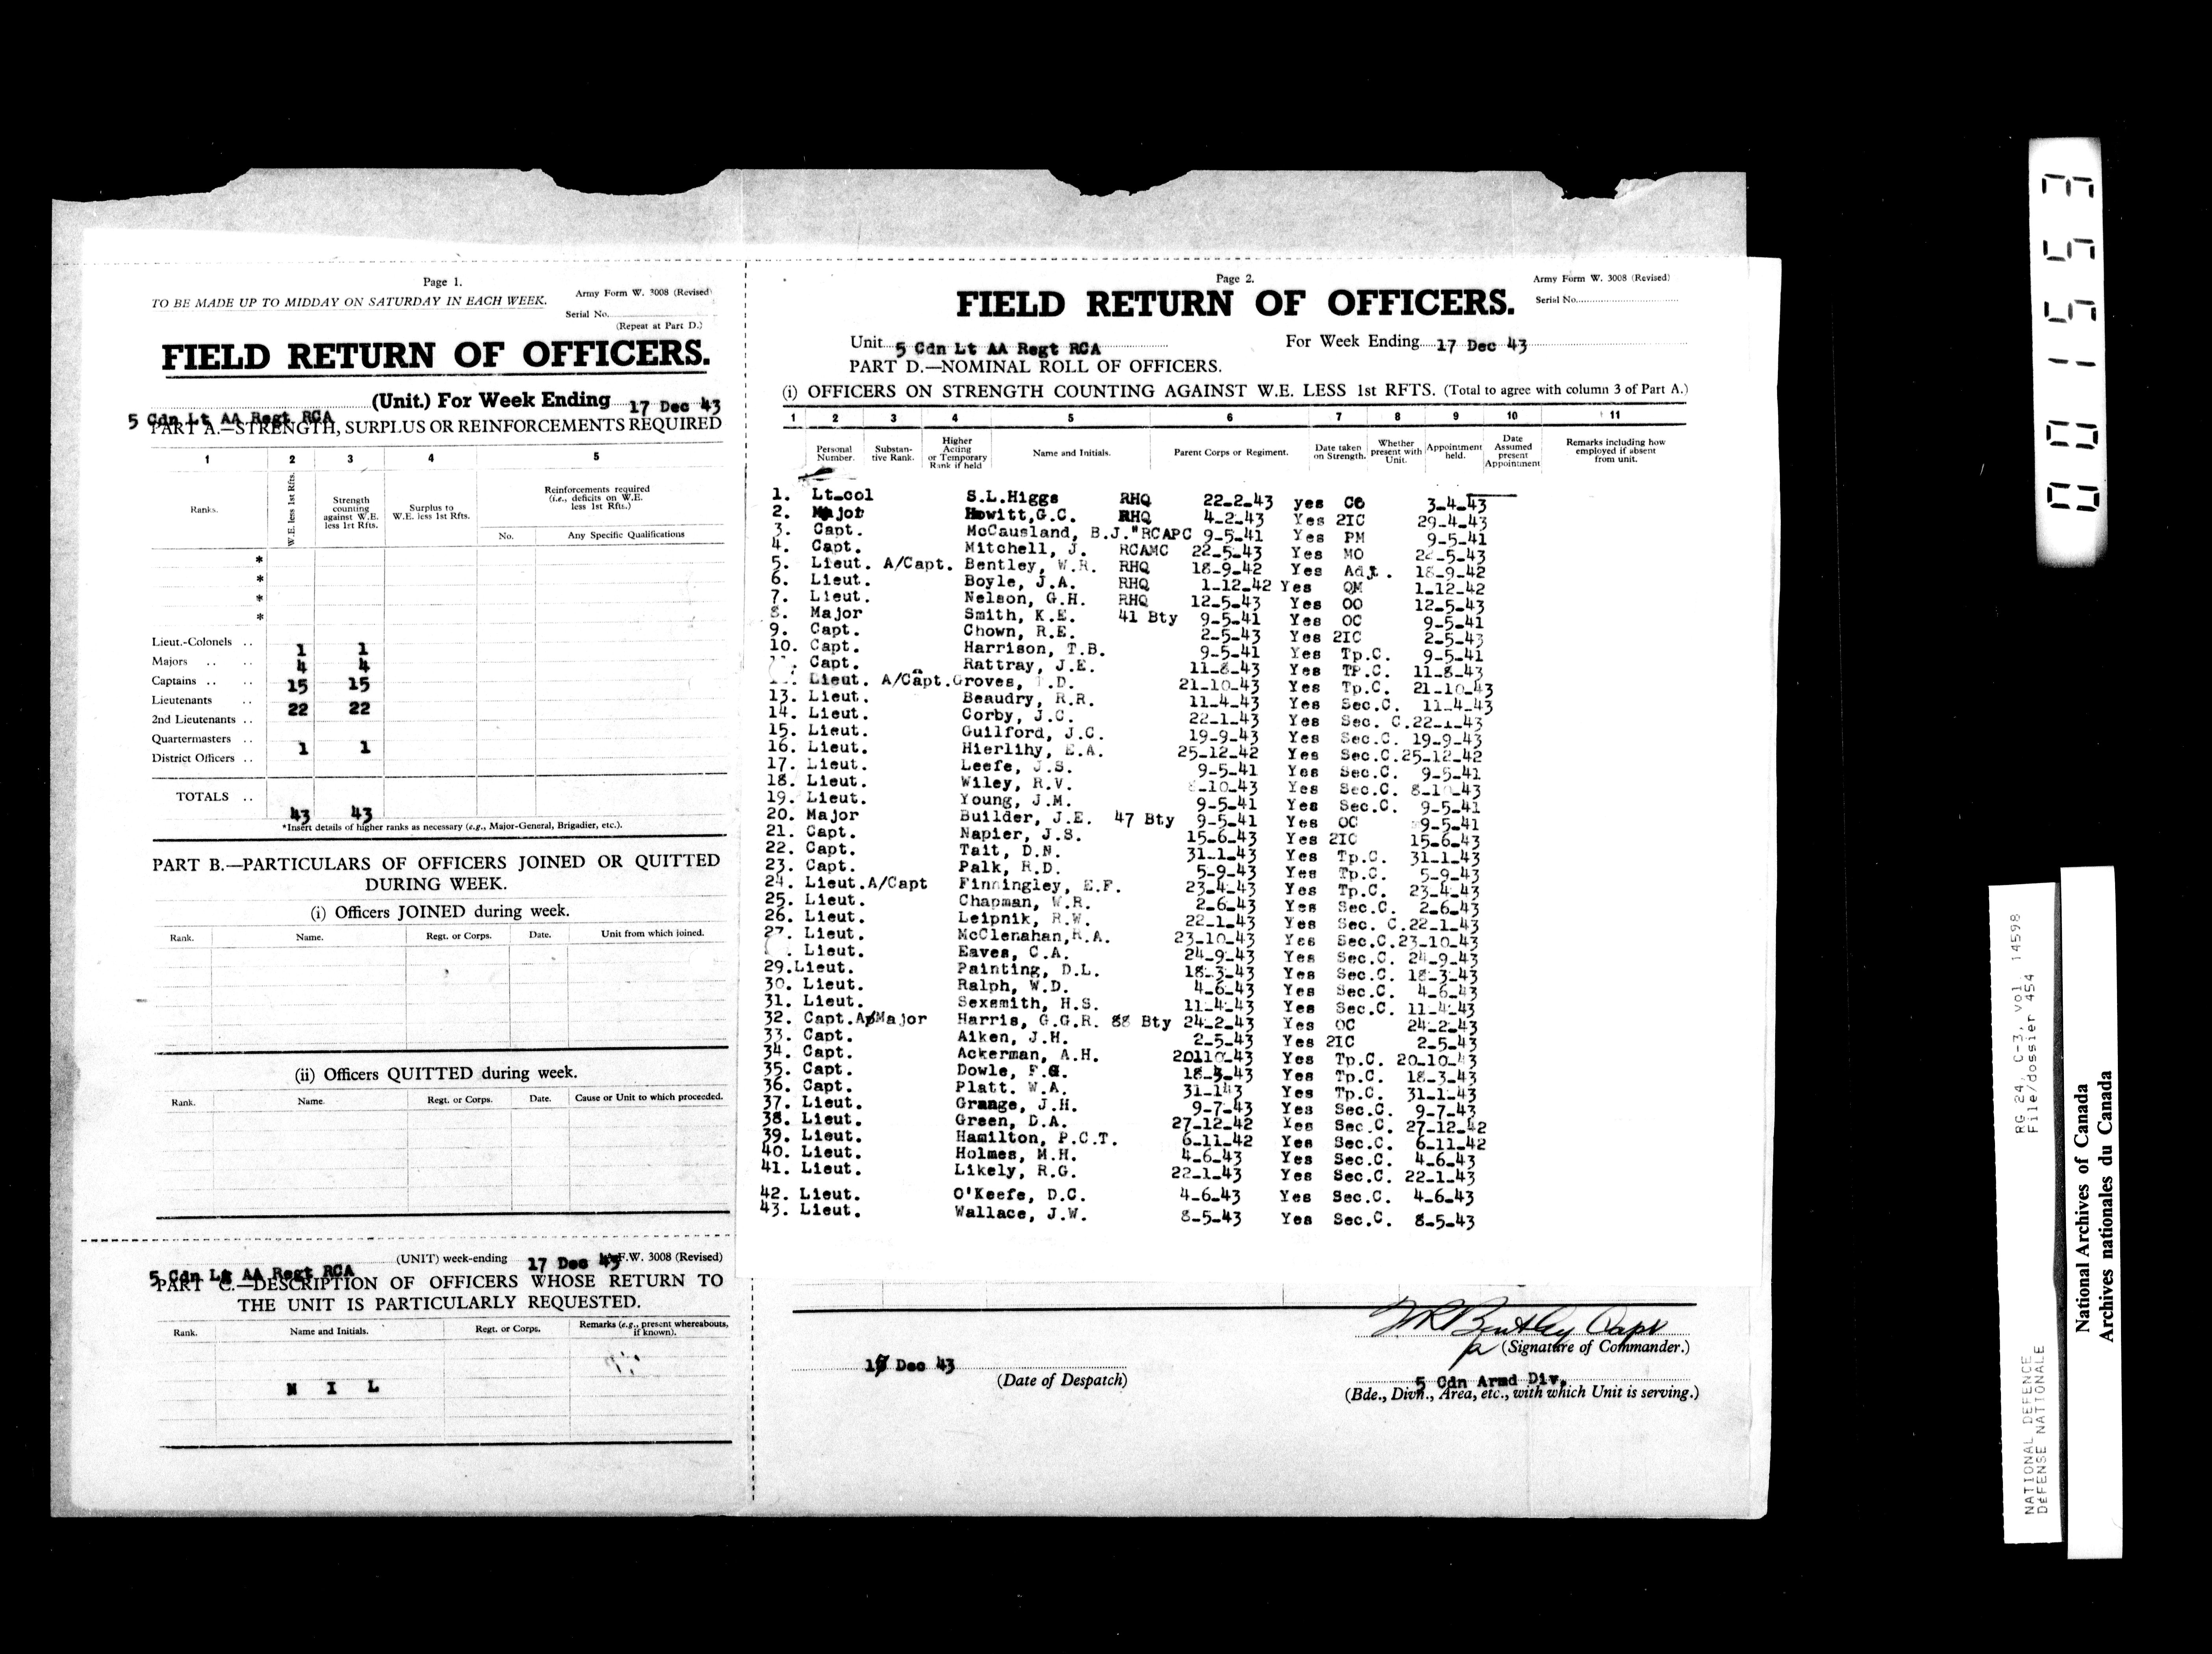 Page 1.
TO BE MADE UP TO MIDDAY ON SATURDAY IN EACH WEEK.
Army Form W. 3008 (Revised)
Serial No.
(Repeat at Part D.)
FIELD RETURN OF OFFICERS.
5 Cdn Lt AA Regt RCA (Unit.) For Week Ending 17 Dec 43
PART A.—STRENGTH, SURPLUS OR REINFORCEMENTS REQUIRED
1 2 3 4 5
Ranks.
W.E. less 1st Rfts.
Strength counting against W.E. less 1rt Rfts.
Surplus to W.E. less 1st Rfts.
Reinforcements required (i.e., deficits on W.E. less 1st Rfts.)
No. Any Specific Qualifications
*
*
*
*
Lieut.-Colonels .. 1 1
Majors .. .. 4 4
Captains .. .. 15 15
Lieutenants .. 22 22
2nd Lieutenants ..
Quartermasters .. 1 1
District Officers ..
TOTALS .. 43 43
*Insert details of higher ranks as necessary (e.g., Major-General, Brigadier, etc.).
PART B.—PARTICULARS OF OFFICERS JOINED OR QUITTED
DURING WEEK.
(i) Officers JOINED during week.
Rank. Name. Regt. or Corps. Date. Unit from which joined.
(ii) Officers QUITTED during week.
Rank. Name. Regt. or Corps. Date. Cause or Unit to which proceeded.
5 Cdn Lt AA Regt RCA (UNIT) week-ending 17 Dec 43 A.F.W. 3008 (Revised)
PART C.—DESCRIPTION OF OFFICERS WHOSE RETURN TO
THE UNIT IS PARTICULARLY REQUESTED.
Rank. Name and Initials. Regt. or Corps. Remarks (e.g., present whereabouts, if known).
N I L
Page 2.
Army Form W. 3008 (Revised)
Serial No.
FIELD RETURN OF OFFICERS.
Unit 5 Cdn Lt AA Regt RCA For Week Ending 17 Dec 43
PART D.—NOMINAL ROLL OF OFFICERS.
(i) OFFICERS ON STRENGTH COUNTING AGAINST W.E. LESS 1st RFTS. (Total to agree with column 3 of Part A.)
1 2 3 4 5 6 7 8 9 10 11
Personal Number.
Substantive Rank.
Higher Acting or Temporary Rank if held
Name and Initials.
Parent Corps or Regiment.
Date taken on Strength.
Whether present with Unit.
Appointment held.
Date Assumed present Appointment
Remarks including how employed if absent from unit.
1. Lt-col S.L.Higgs RHQ 22-2-43 yes CO 3-4-43
2. Major Howitt,G.C. RHQ 4-2-43 Yes 2IC 29-4-43
3. Capt. McCausland, B.J."RCAPC 9-5-41 Yes PM 9-5-41
4. Capt. Mitchell, J. RCAMC 22-5-43 Yes MO 22-5-43
5. Lieut. A/Capt. Bentley, W.R. RHQ 18-9-42 Yes Adjt. 18-9-42
6. Lieut. Boyle, J.A. RHQ 1-12-42 Yes QM 1-12-42
7. Lieut. Nelson, G.H. RHQ 12-5-43 Yes OO 12-5-43
8. Major Smith, K.E. 41 Bty 9-5-41 Yes OC 9-5-41
9. Capt. Chown, R.E. 2-5-43 Yes 2IC 2-5-43
10. Capt. Harrison, T.B. 9-5-41 Yes Tp.C. 9-5-41
Capt. Rattray, J.E. 11-8-43 Yes TP.C. 11-8-43
Lieut. A/Capt.Groves, D. 21-10-43 Yes Tp.C. 21-10-43
13. Lieut. Beaudry, R.R. 11-4-43 Yes Sec.C. 11-4-43
14. Lieut. Corby, J.C. 22-1-43 Yes Sec. C.22-1-43
15. Lieut. Guilford, J.C. 19-9-43 Yes Sec.C. 19-9-43
16. Lieut. Hierlihy, E.A. 25-12-42 Yes Sec.C.25-12-42
17. Lieut. Leefe, J.S. 9-5-41 Yes Sec.C. 9-5-41
18. Lieut. Wiley, R.V. 8-10-43 Yes Sec.C. 8-10-43
19. Lieut. Young, J.M. 9-5-41 Yes Sec.C. 9-5-41
20. Major Builder, J.E. 47 Bty 9-5-41 Yes OC 9-5-41
21. Capt. Napier, J.S. 15-6-43 Yes 2IC 15-6-43
22. Capt. Tait, D.N. 31-1-43 Yes Tp.C. 31-1-43
23. Capt. Palk, R.D. 5-9-43 Yes Tp.C. 5-9-43
24. Lieut.A/Capt Finningley, E.F. 23-4-43 Yes Tp.C. 23-4-43
25. Lieut. Chapman, W.R. 2-6-43 Yes Sec.C. 2-6-43
26. Lieut. Leipnik, R.W. 22-1-43 Yes Sec. C.22-1-43
27. Lieut. McClenahan,R.A. 23-10-43 Yes Sec.C.23-10-43
Lieut. Eaves, C.A. 24-9-43 Yes Sec.C. 24-9-43
29.Lieut. Painting, D.L. 18-3-43 Yes Sec.C. 18-3-43
30. Lieut. Ralph, W.D. 4-6-43 Yes Sec.C. 4-6-43
31. Lieut. Sexsmith, H.S. 11-4-43 Yes Sec.C. 11-4-43
32. Capt.A/Major Harris, G.G.R. 88 Bty 24-2-43 Yes OC 24-2-43
33. Capt. Aiken, J.H. 2-5-43 Yes 2IC 2-5-43
34. Capt. Ackerman, A.H. 20110-43 Yes Tp.C. 20-10-43
35. Capt. Dowle, F.G. 18-3-43 Yes Tp.C. 18-3-43
36. Capt. Platt. W.A. 31-143 Yes Tp.C. 31-1-43
37. Lieut. Grange, J.H. 9-7-43 Yes Sec.C. 9-7-43
38. Lieut. Green, D.A. 27-12-42 Yes Sec.C. 27-12-42
39. Lieut. Hamilton, P.C.T. 6-11-42 Yes Sec.C. 6-11-42
40. Lieut. Holmes, M.H. 4-6-43 Yes Sec.C. 4-6-43
41. Lieut. Likely, R.G. 22-1-43 Yes Sec.C. 22-1-43
42. Lieut. O'Keefe, D.C. 4-6-43 Yes Sec.C. 4-6-43
43. Lieut. Wallace, J.W. 8-5-43 Yes Sec.C. 8-5-43
WR Bentley Capt
(Signature of Commander.)
Dec 43
(Date of Despatch)
5 Cdn Armd Div.
(Bde., Divn., Area, etc., with which Unit is serving.)
001553
NATIONAL DEFENCE RG 24, C-3, vol. 14598
DÉFENSE NATIONALE File/dossier 454
National Archives of Canada
Archives nationales du Canada